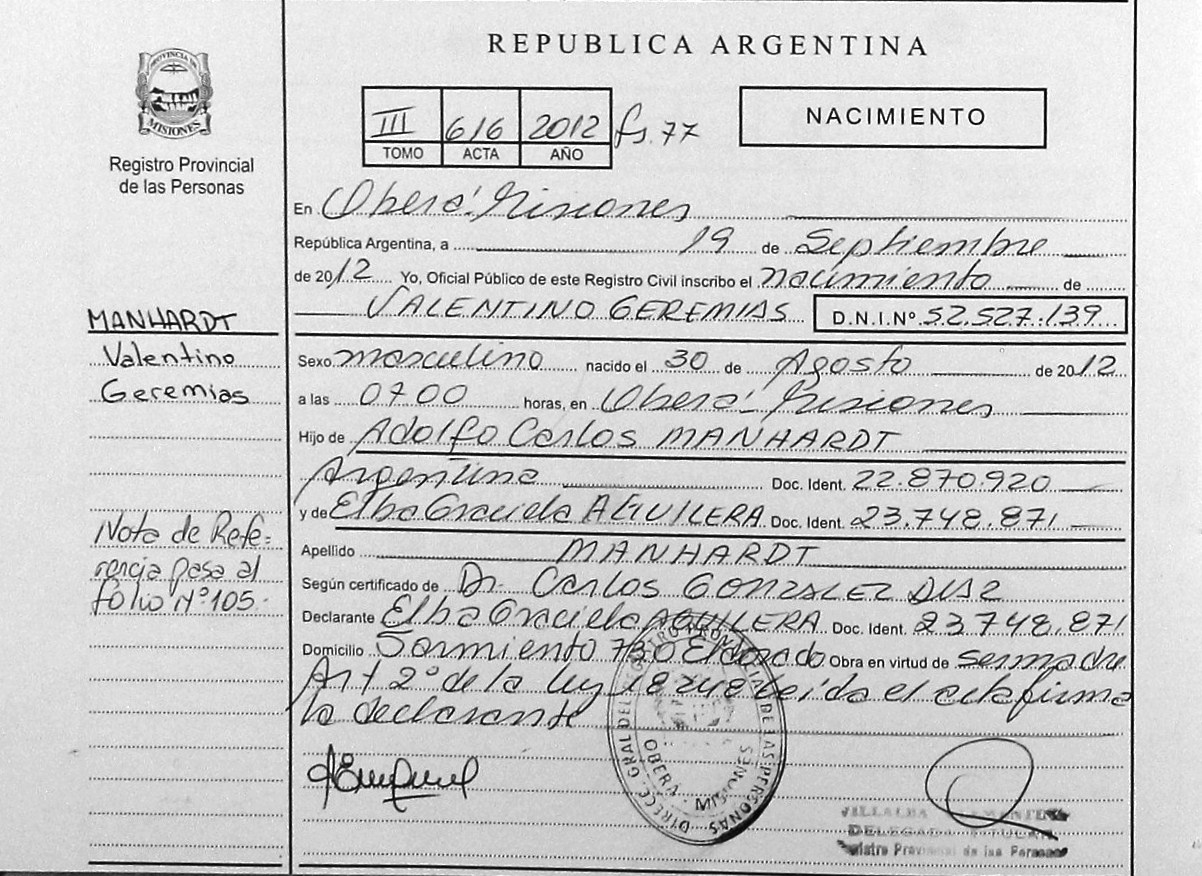 REPUBLICA ARGENTINA
PROVINCIA DE
MISIONES
Registro Provincial
de las Personas
III 616 2012 fs. 77
TOMO ACTA AÑO
NACIMIENTO
En Oberá - Misiones
República Argentina, a 19 de Septiembre
de 2012 Yo, Oficial Público de este Registro Civil inscribo el nacimiento de
VALENTINO GEREMIAS D.N.I.Nº 52.527.139
MANHARDT
Valentino
Geremias
Sexo masculino nacido el 30 de Agosto de 2012
a las 0700 horas, en Oberá - Misiones
Hijo de Adolfo Carlos MANHARDT
Argentina Doc. Ident. 22.870.920
y de Elba Graciela AGUILERA Doc. Ident. 23.748.871
Apellido MANHARDT
Según certificado de Dr. Carlos GONZALEZ DIAZ
Declarante Elba Graciela AGUILERA Doc. Ident. 23.748.871
Domicilio Sarmiento 730 Eldorado Obra en virtud de ser madre
Art 2º de la ley 18248 leída el acta firma
la declarante
Nota de Refe=
rencia pasa al
folio Nº 105.
DIRECC. GRAL DEL REGISTRO PROVINCIAL DE LAS PERSONAS
OBERA - MISIONES
VILLALBA
DELEGADA TITULAR
Registro Provincial de las Personas